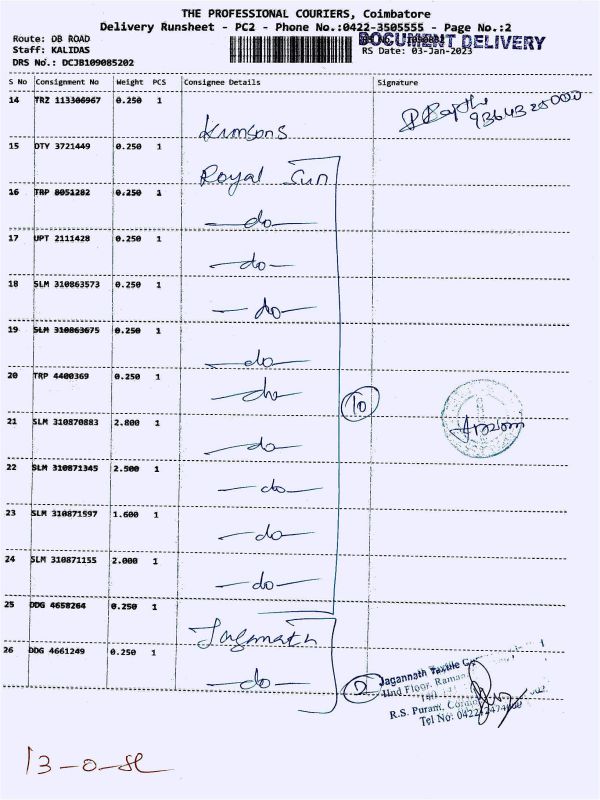 THE PROFESSIONAL COURIERS, Coimbatore
Delivery Runsheet - PC2 - Phone No.:0422-3505555 - Page No.:2
Route: DB ROAD
DOCUMENT DELIVERY
Staff: KALIDAS
RS Date: 03-Jan-2023
DRS No.: DCJB109085202
S No Consignment No Weight PCS Consignee Details Signature
14 TRZ 113306967 0.250 1 Kimsons
9364325000
15 DTY 3721449 0.250 1 Royal Sun
16 TRP 8051282 0.250 1 —do—
17 UPT 2111428 0.250 1 —do—
18 SLM 310863573 0.250 1 —do—
19 SLM 310863675 0.250 1 —do—
20 TRP 4400369 0.250 1 —do—
10
21 SLM 310870883 2.800 1 —do—
22 SLM 310871345 2.500 1 —do—
23 SLM 310871597 1.600 1 —do—
24 SLM 310871155 2.000 1 —do—
25 DDG 4658264 0.250 1 Jaganath
26 DDG 4661249 0.250 1 —do—
2
Jagannath Textile
IInd Floor, Raman
R.S. Puram,
Tel No: 0422
13-0-SL